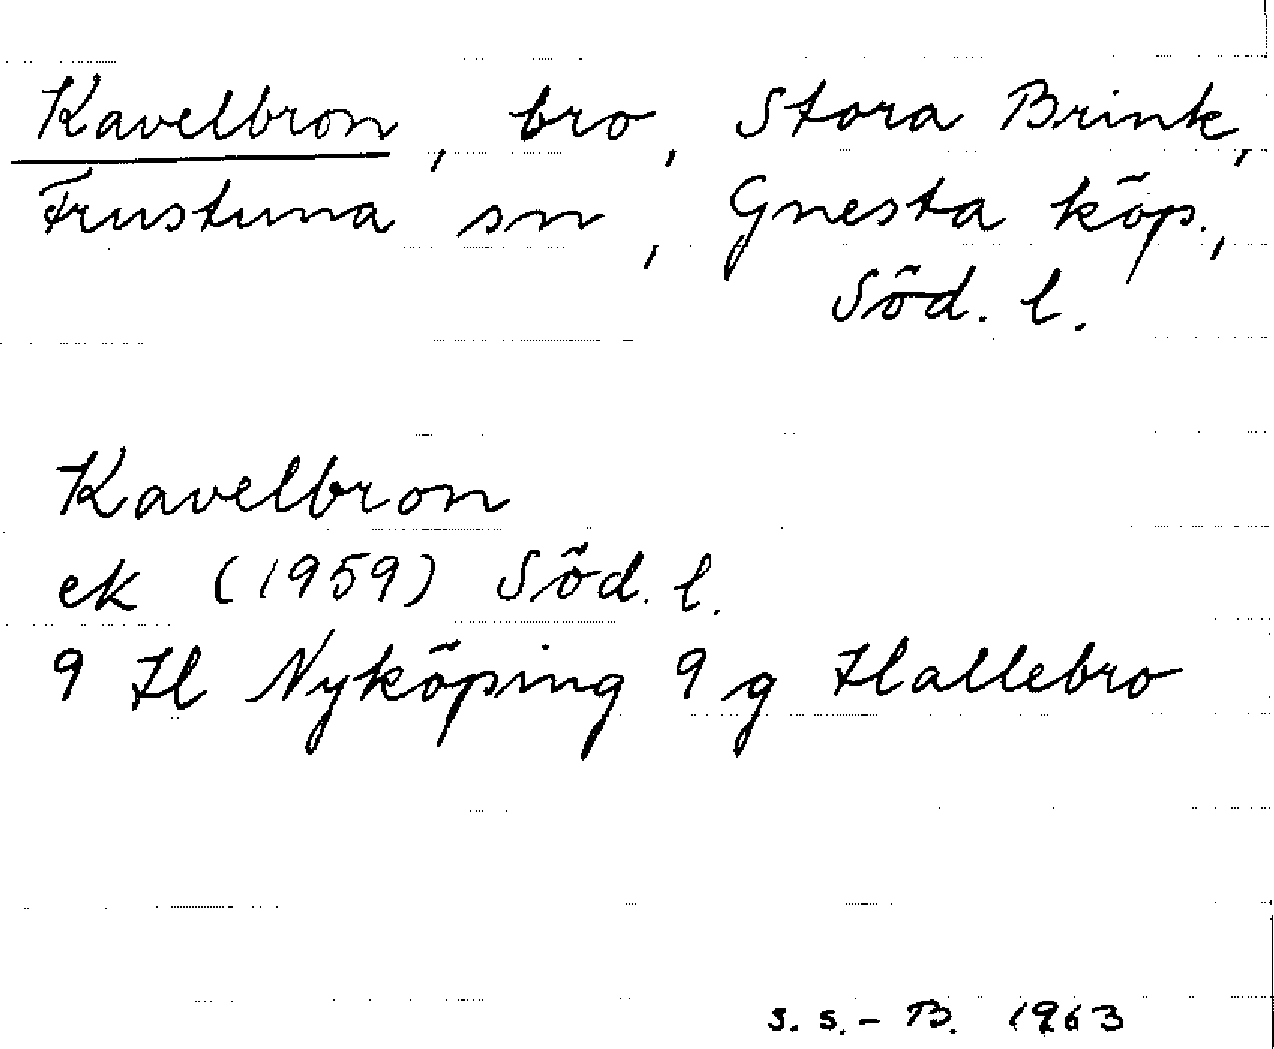 Kavelbron, bro, Stora Brink,
Frustuna sn, Gnesta köp.,
Söd. l.
Kavelbron
ek (1959) Söd. l.
9 H Nyköping 9 g Hallebro
S. S. - B. 1963